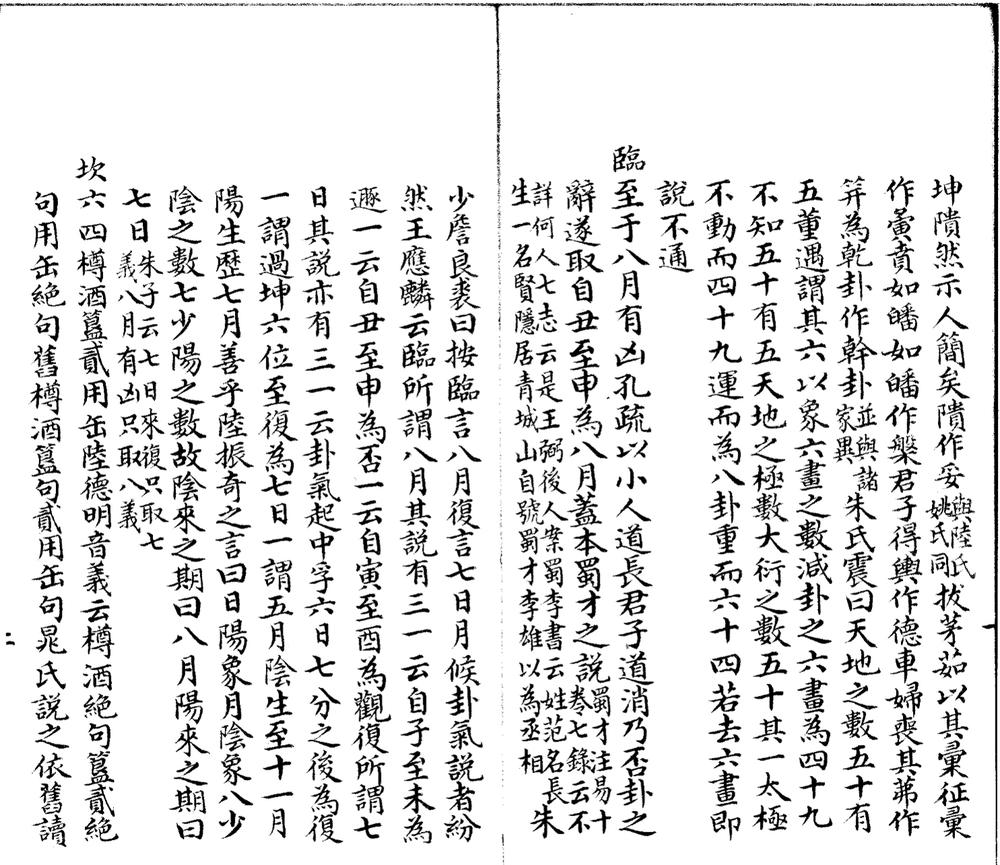 坤隤然示人簡矣隤作妥與陸氏姚氏同拔茅茹以其彙征彙
作夤賁如皤如皤作槃君子得輿作德車婦喪其茀作
笄為乾卦作幹卦並與諸家異朱氏震曰天地之數五十有
五董遇謂其六以象六畫之數減卦之六畫為四十九
不知五十有五天地之極數大衍之數五十其一太極
不動而四十九運而為八卦重而六十四若去六畫即
說不通
臨至于八月有凶孔疏以小人道長君子道消乃否卦之
辭遂取自丑至申為八月蓋本蜀才之說蜀才注易十卷七錄云不
詳何人七志云是王弼後人案蜀李書云姓范名長生一名賢隱居青城山自號蜀才李雄以為丞相朱
少詹良裘曰按臨言八月復言七日月候卦氣說者紛
然王應麟云臨所謂八月其說有三一云自子至未為
遯一云自丑至申為否一云自寅至酉為觀復所謂七
日其說亦有三一云卦氣起中孚六日七分之後為復
一謂過坤六位至復為七日一謂五月陰生至十一月
陽生歷七月善乎陸振奇之言曰日陽象月陰象八少
陰之數七少陽之數故陰來之期曰八月陽來之期曰
七日朱子云七日來復只取七義八月有凶只取八義
坎六四樽酒簋貳用缶陸德明音義云樽酒絕句簋貳絕
句用缶絕句舊樽酒簋句貳用缶句晁氏說之依舊讀
二